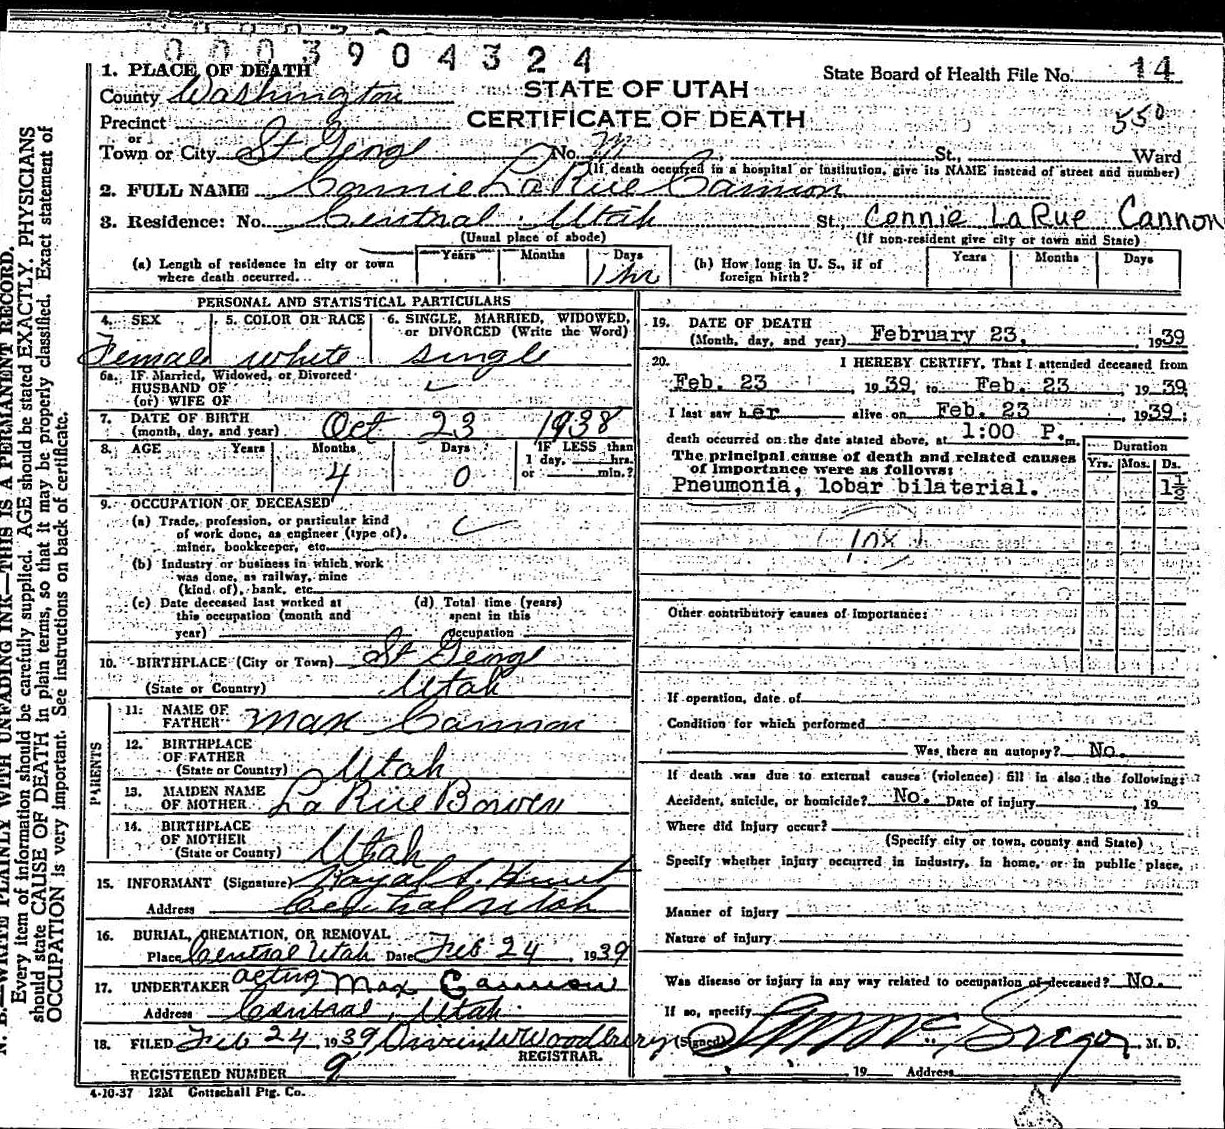 0003904324
1. PLACE OF DEATH
State Board of Health File No. 14
County Washington
STATE OF UTAH
Precinct
CERTIFICATE OF DEATH
550
or
Town or City St George No. St., Ward
(If death occurred in a hospital or institution, give its NAME instead of street and number)
2. FULL NAME Connie LaRue Cannon
3. Residence: No. Central, Utah St. Connie LaRue Cannon
(Usual place of abode) (If non-resident give city or town and State)
(a) Length of residence in city or town where death occurred. Years Months Days 1 hr (b) How long in U. S., if of foreign birth? Years Months Days
PERSONAL AND STATISTICAL PARTICULARS
4. SEX 5. COLOR OR RACE 6. SINGLE, MARRIED, WIDOWED, or DIVORCED (Write the Word)
Female white single
6a. IF Married, Widowed, or Divorced
HUSBAND OF
(or) WIFE OF
7. DATE OF BIRTH
(month, day, and year) Oct 23 1938
8. AGE Years Months Days IF LESS than
1 day, hrs.
4 0 or min.?
9. OCCUPATION OF DECEASED
(a) Trade, profession, or particular kind
of work done, as engineer (type of),
miner, bookkeeper, etc.
(b) Industry or business in which work
was done, as railway, mine
(kind of), bank, etc.
(c) Date deceased last worked at (d) Total time (years)
this occupation (month and spent in this
year) occupation
10. BIRTHPLACE (City or Town) St George
(State or Country) Utah
PARENTS
11. NAME OF
FATHER Max Cannon
12. BIRTHPLACE
OF FATHER
(State or Country) Utah
13. MAIDEN NAME
OF MOTHER LaRue Bowen
14. BIRTHPLACE
OF MOTHER
(State or Country) Utah
15. INFORMANT (Signature) Royal S. Hunt
Address Central Utah
16. BURIAL, CREMATION, OR REMOVAL
Place Central Utah Date Feb 24, 1939
17. UNDERTAKER acting Max Cannon
Address Central, Utah
18. FILED Feb 24 1939 Woodbury
REGISTRAR.
REGISTERED NUMBER 9
4-10-37 12M Gottschall Ptg. Co.
19. DATE OF DEATH
(Month, day, and year) February 23, 1939
20. I HEREBY CERTIFY, That I attended deceased from
Feb. 23, 1939, to Feb. 23, 1939
I last saw her alive on Feb. 23, 1939;
death occurred on the date stated above, at 1:00 P. m.
Duration
The principal cause of death and related causes Yrs. Mos. Ds.
of importance were as follows:
Pneumonia, lobar bilaterial. 1½
Other contributory causes of importance:
If operation, date of
Condition for which performed
Was there an autopsy? No.
If death was due to external causes (violence) fill in also the following:
Accident, suicide, or homicide? No. Date of injury , 19
Where did injury occur?
(Specify city or town, county and State)
Specify whether injury occurred in industry, in home, or in public place,
Manner of injury
Nature of injury
Was disease or injury in any way related to occupation of deceased? No.
If so, specify
(Signed) M. D.
, 19 Address
N. B.—WRITE PLAINLY WITH UNFADING INK—THIS IS A PERMANENT RECORD.
Every item of information should be carefully supplied. AGE should be stated EXACTLY. PHYSICIANS
should state CAUSE OF DEATH in plain terms, so that it may be properly classified. Exact statement of
OCCUPATION is very important. See instructions on back of certificate.